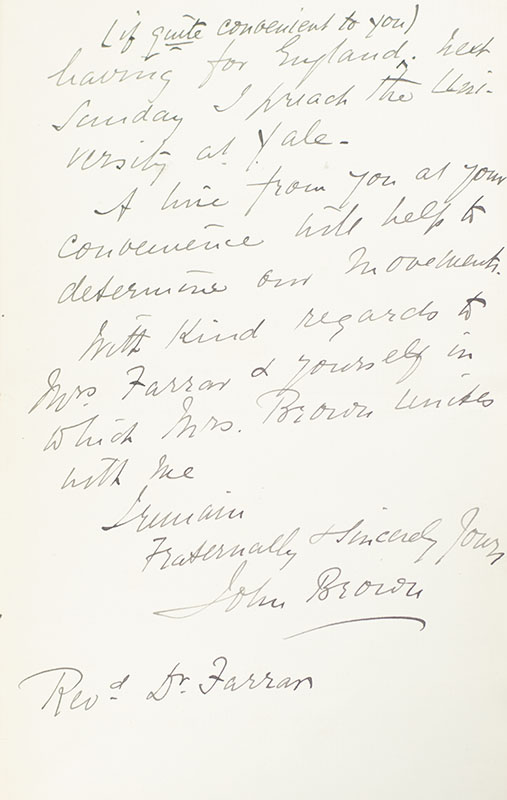 (if quite convenient to you)
having for England. Next
Sunday I preach the Uni-
versity at Yale -
A line from you at your
convenience will help to
determine our movements.
With Kind regards to
Mrs. Farrar & yourself in
which Mrs. Brown unites
with me
I remain
Fraternally & Sincerely Yours
John Brown
Revd Dr. Farrar